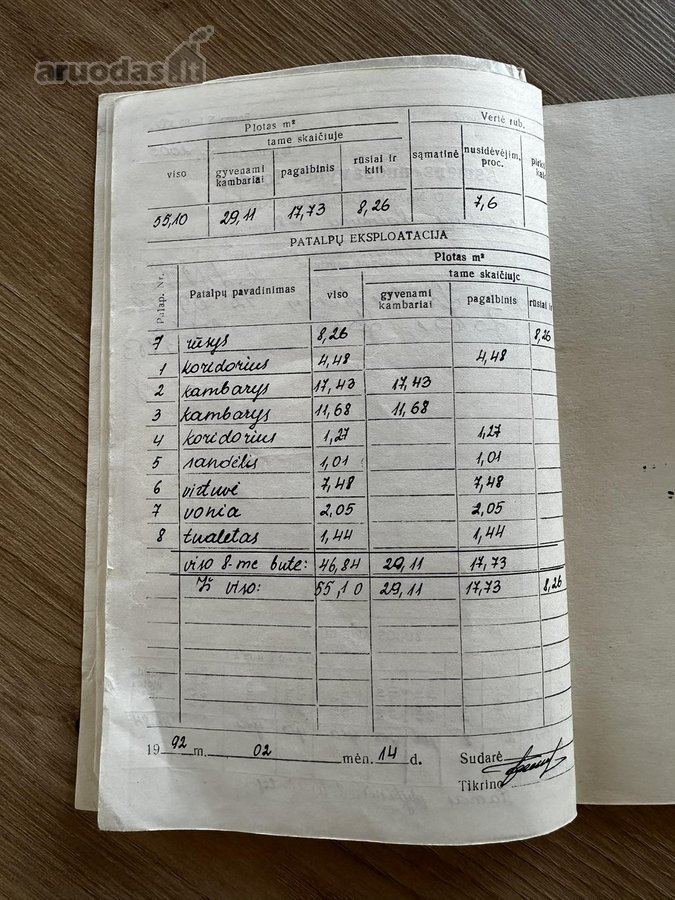 aruodas.lt
Plotas m² Vertė rub.
tame skaičiuje
viso gyvenami kambariai pagalbinis rūsiai ir kiti sąmatinė nusidėvėjim. proc.
55,10 29,11 17,73 8,26 7,6
PATALPŲ EKSPLOATACIJA
Plotas m²
tame skaičiuje
Patalp. Nr. Patalpų pavadinimas viso gyvenami kambariai pagalbinis rūsiai ir
7 rūsys 8,26 8,26
1 koridorius 4,48 4,48
2 kambarys 17,43 17,43
3 kambarys 11,68 11,68
4 koridorius 1,27 1,27
5 sandėlis 1,01 1,01
6 virtuvė 7,48 7,48
7 vonia 2,05 2,05
8 tualetas 1,44 1,44
viso 8-me bute: 46,84 29,11 17,73
Iš viso: 55,10 29,11 17,73 8,26
1992 m. 02 mėn. 14 d. Sudarė
Tikrino